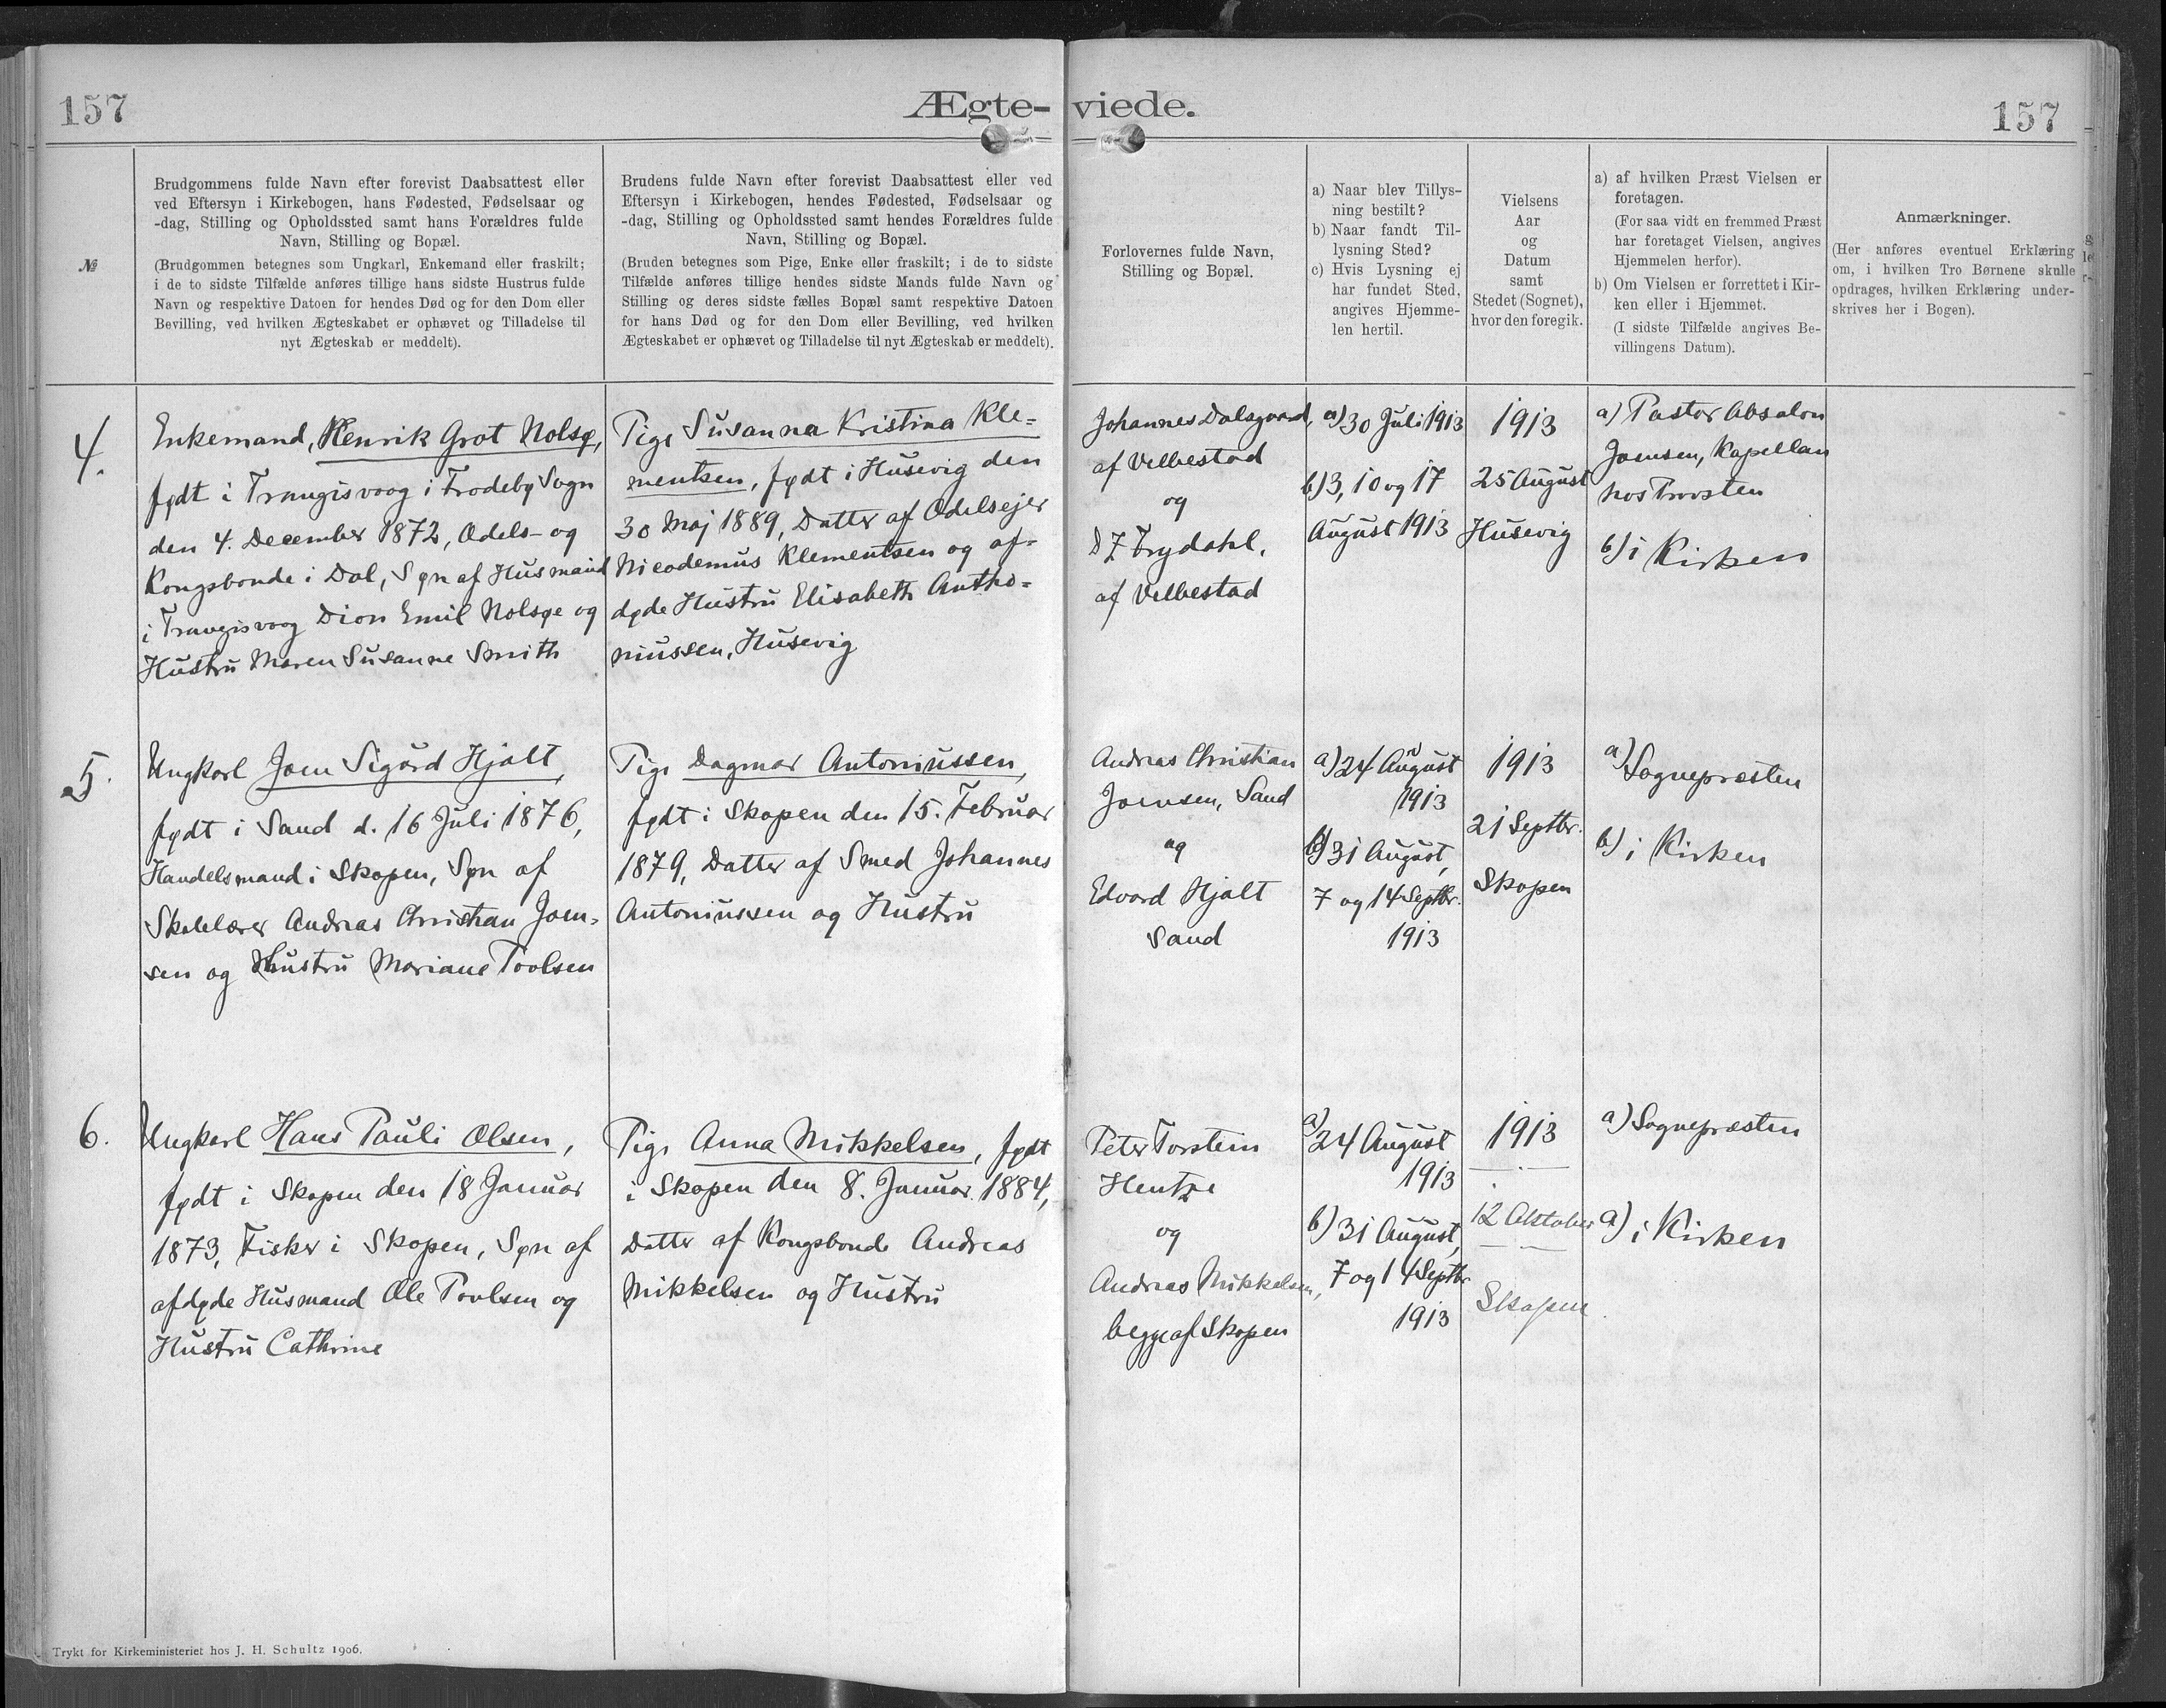 157
Ægte- viede.
157
№
Brudgommens fulde Navn efter forevist Daabsattest eller
ved Eftersyn i Kirkebogen, hans Fødested, Fødselsaar og
-dag, Stilling og Opholdssted samt hans Forældres fulde
Navn, Stilling og Bopæl.
(Brudgommen betegnes som Ungkarl, Enkemand eller fraskilt;
i de to sidste Tilfælde anføres tillige hans sidste Hustrus fulde
Navn og respektive Datoen for hendes Død og for den Dom eller
Bevilling, ved hvilken Ægteskabet er ophævet og Tilladelse til
nyt Ægteskab er meddelt).
Brudens fulde Navn efter forevist Daabsattest eller ved
Eftersyn i Kirkebogen, hendes Fødested, Fødselsaar og
-dag, Stilling og Opholdssted samt hendes Forældres fulde
Navn, Stilling og Bopæl.
(Bruden betegnes som Pige, Enke eller fraskilt; i de to sidste
Tilfælde anføres tillige hendes sidste Mands fulde Navn og
Stilling og deres sidste fælles Bopæl samt respektive Datoen
for hans Død og for den Dom eller Bevilling, ved hvilken
Ægteskabet er ophævet og Tilladelse til nyt Ægteskab er meddelt).
Forlovernes fulde Navn,
Stilling og Bopæl.
a) Naar blev Tillys-
ning bestilt?
b) Naar fandt Til-
lysning Sted?
c) Hvis Lysning ej
har fundet Sted,
angives Hjemme-
len hertil.
Vielsens
Aar
og
Datum
samt
Stedet (Sognet),
hvor den foregik.
a) af hvilken Præst Vielsen er
foretagen.
(For saa vidt en fremmed Præst
har foretaget Vielsen, angives
Hjemmelen herfor).
b) Om Vielsen er forrettet i Kir-
ken eller i Hjemmet.
(I sidste Tilfælde angives Be-
villingens Datum).
Anmærkninger.
(Her anføres eventuel Erklæring
om, i hvilken Tro Børnene skulle
opdrages, hvilken Erklæring under-
skrives her i Bogen).
4.
Enkemand, Henrik Grot Nolsø,
født i Trangisvaag i Frodebø Sogn
den 4. December 1872, Odels- og
Kongsbonde i Dal, Søn af Husmand
i Trangisvaag Dion Emil Nolsøe og
Hustru Maren Susanne Smith
Pige Susanna Kristina Kle=
mentsen, født i Husevig den
30 Maj 1889, Datter af Odelsejer
Nicodemus Klementsen og af=
døde Hustru Elisabeth Antho=
niussen, Husevig
Johannes Dalsgaard,
af Velbestad
og
D J Frydahl,
af Velbestad
a) 30 Juli 1913
b) 3, 10 og 17
August 1913
1913
25 August
Husevig
a) Pastor Absalon
Joensen, Kapellan
hos Provsten
b) i Kirken
5.
Ungkarl Joen Sigurd Hjalt,
født i Sand d. 16 Juli 1876,
Handelsmand i Skopen, Søn af
Skolelærer Andreas Christian Joen=
sen og Hustru Mariane Poolsen
Pige Dagmar Antoniussen,
født i Skopen den 15. Februar
1879, Datter af Smed Johannes
Antoniussen og Hustru
Andreas Christian
Joensen, Sand
og
Edvard Hjalt
Sand
a) 24 August
1913
b) 31 August,
7 og 14 Septbr.
1913
1913
21 Septbr.
Skopen
a) Sognepræsten
b) i Kirken
6.
Ungkarl Hans Pauli Olsen,
født i Skopen den 18 Januar
1873, Fisker i Skopen, Søn af
afdøde Husmand Ole Poulsen og
Hustru Cathrine
Pige Anna Mikkelsen, født
i Skopen den 8. Januar 1884,
Datter af Kongsbonde Andreas
Mikkelsen og Hustru
Peter Torstein
Hentze
og
Andreas Mikkelsen,
begge af Skopen
a) 24 August
1913
b) 31 August,
7 og 14 Septbr.
1913
1913
12 Oktober
Skopen
a) Sognepræsten
a) i Kirken
Trykt for Kirkeministeriet hos J. H. Schultz 1906.